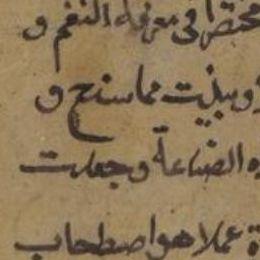 مختصرا فى معرفة النغم و
وبينت مما سنح و
ه الصناعة وجعلت
ة عملا هو اصطحاب